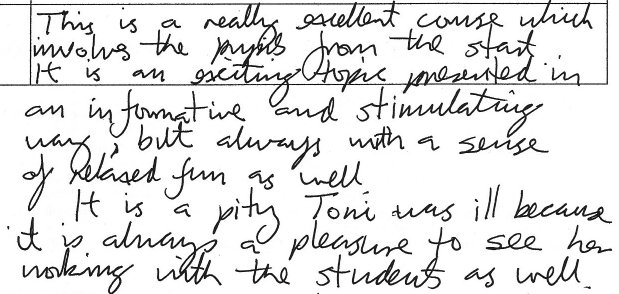 This is a really excellent course which
involves the pupils from the start
It is an exciting topic presented in
an informative and stimulating
way, but always with a sense
of relaxed fun as well
It is a pity Toni was ill because
it is always a pleasure to see her
working with the students as well.